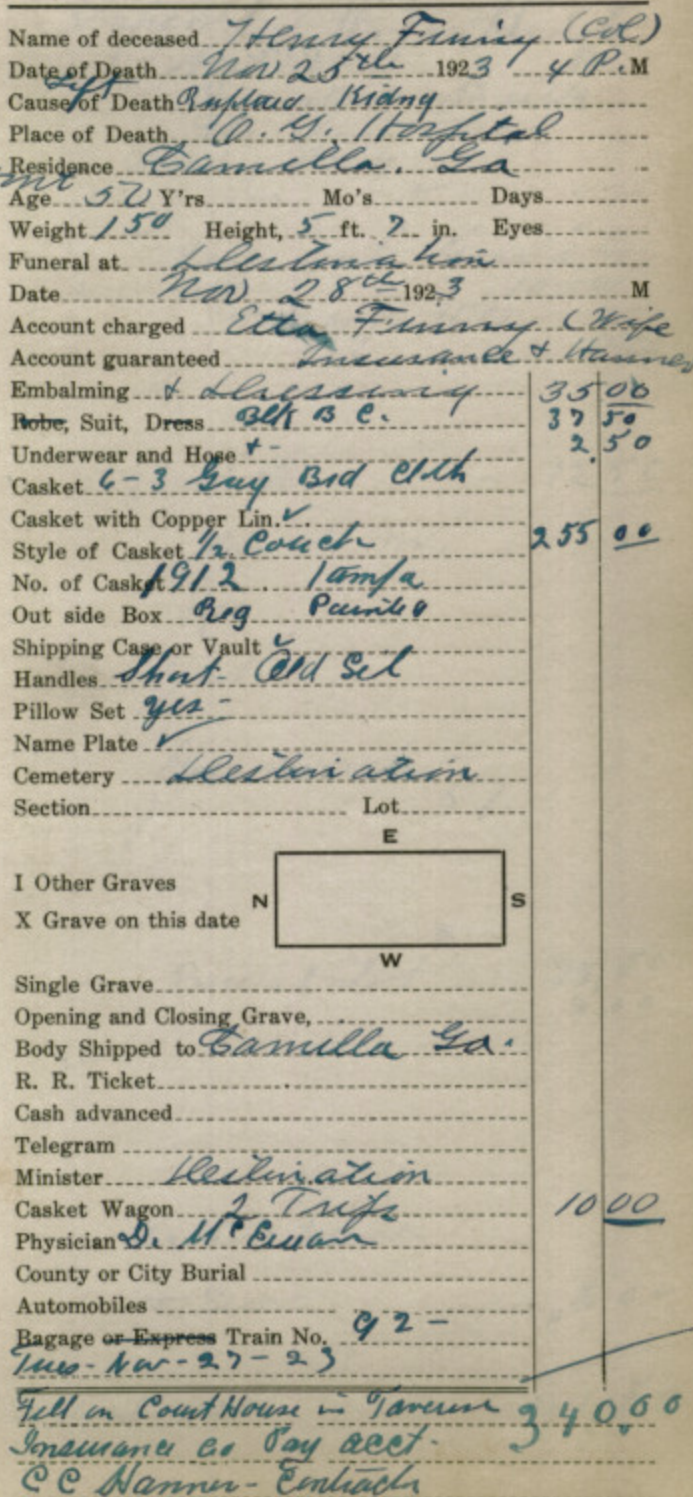 Name of deceased Henry Finny (Col)
Date of Death Nov 25th 1923 4 P.M
Left
Cause of Death Ruptured Kidny
Place of Death O. G. Hospital
Residence Camilla. Ga
Age 50 Y'rs Mo's Days
Weight 150 Height, 5 ft. 7 in. Eyes
Funeral at Destination
Date Nov 28th 1923 M
Account charged Etta Finny (Wife
Account guaranteed Insurance + Hanner
Embalming + Dressing 35 00
Robe, Suit, Dress Blk B C. 37 50
Underwear and Hose + - 2.50
Casket 6-3 Gray Brd Cloth
Casket with Copper Lin. ✓
Style of Casket 1/2 Couch 255 00
No. of Casket 1912 Tampa
Out side Box Reg
Shipping Case or Vault ✓
Handles Short Old Sil
Pillow Set yes -
Name Plate ✓
Cemetery Destination
Section Lot
E
I Other Graves
N S
X Grave on this date
W
Single Grave
Opening and Closing Grave,
Body Shipped to Camilla Ga.
R. R. Ticket
Cash advanced
Telegram
Minister Destination
Casket Wagon 2 Trips 10 00
Physician Dr. McEwan
County or City Burial
Automobiles
Bagage or Express Train No. 92 -
Tues - Nov - 27 - 23
Fell on Court House in Tavares 340.00
Insurance co Pay acct.
C C Hanner - Contractr